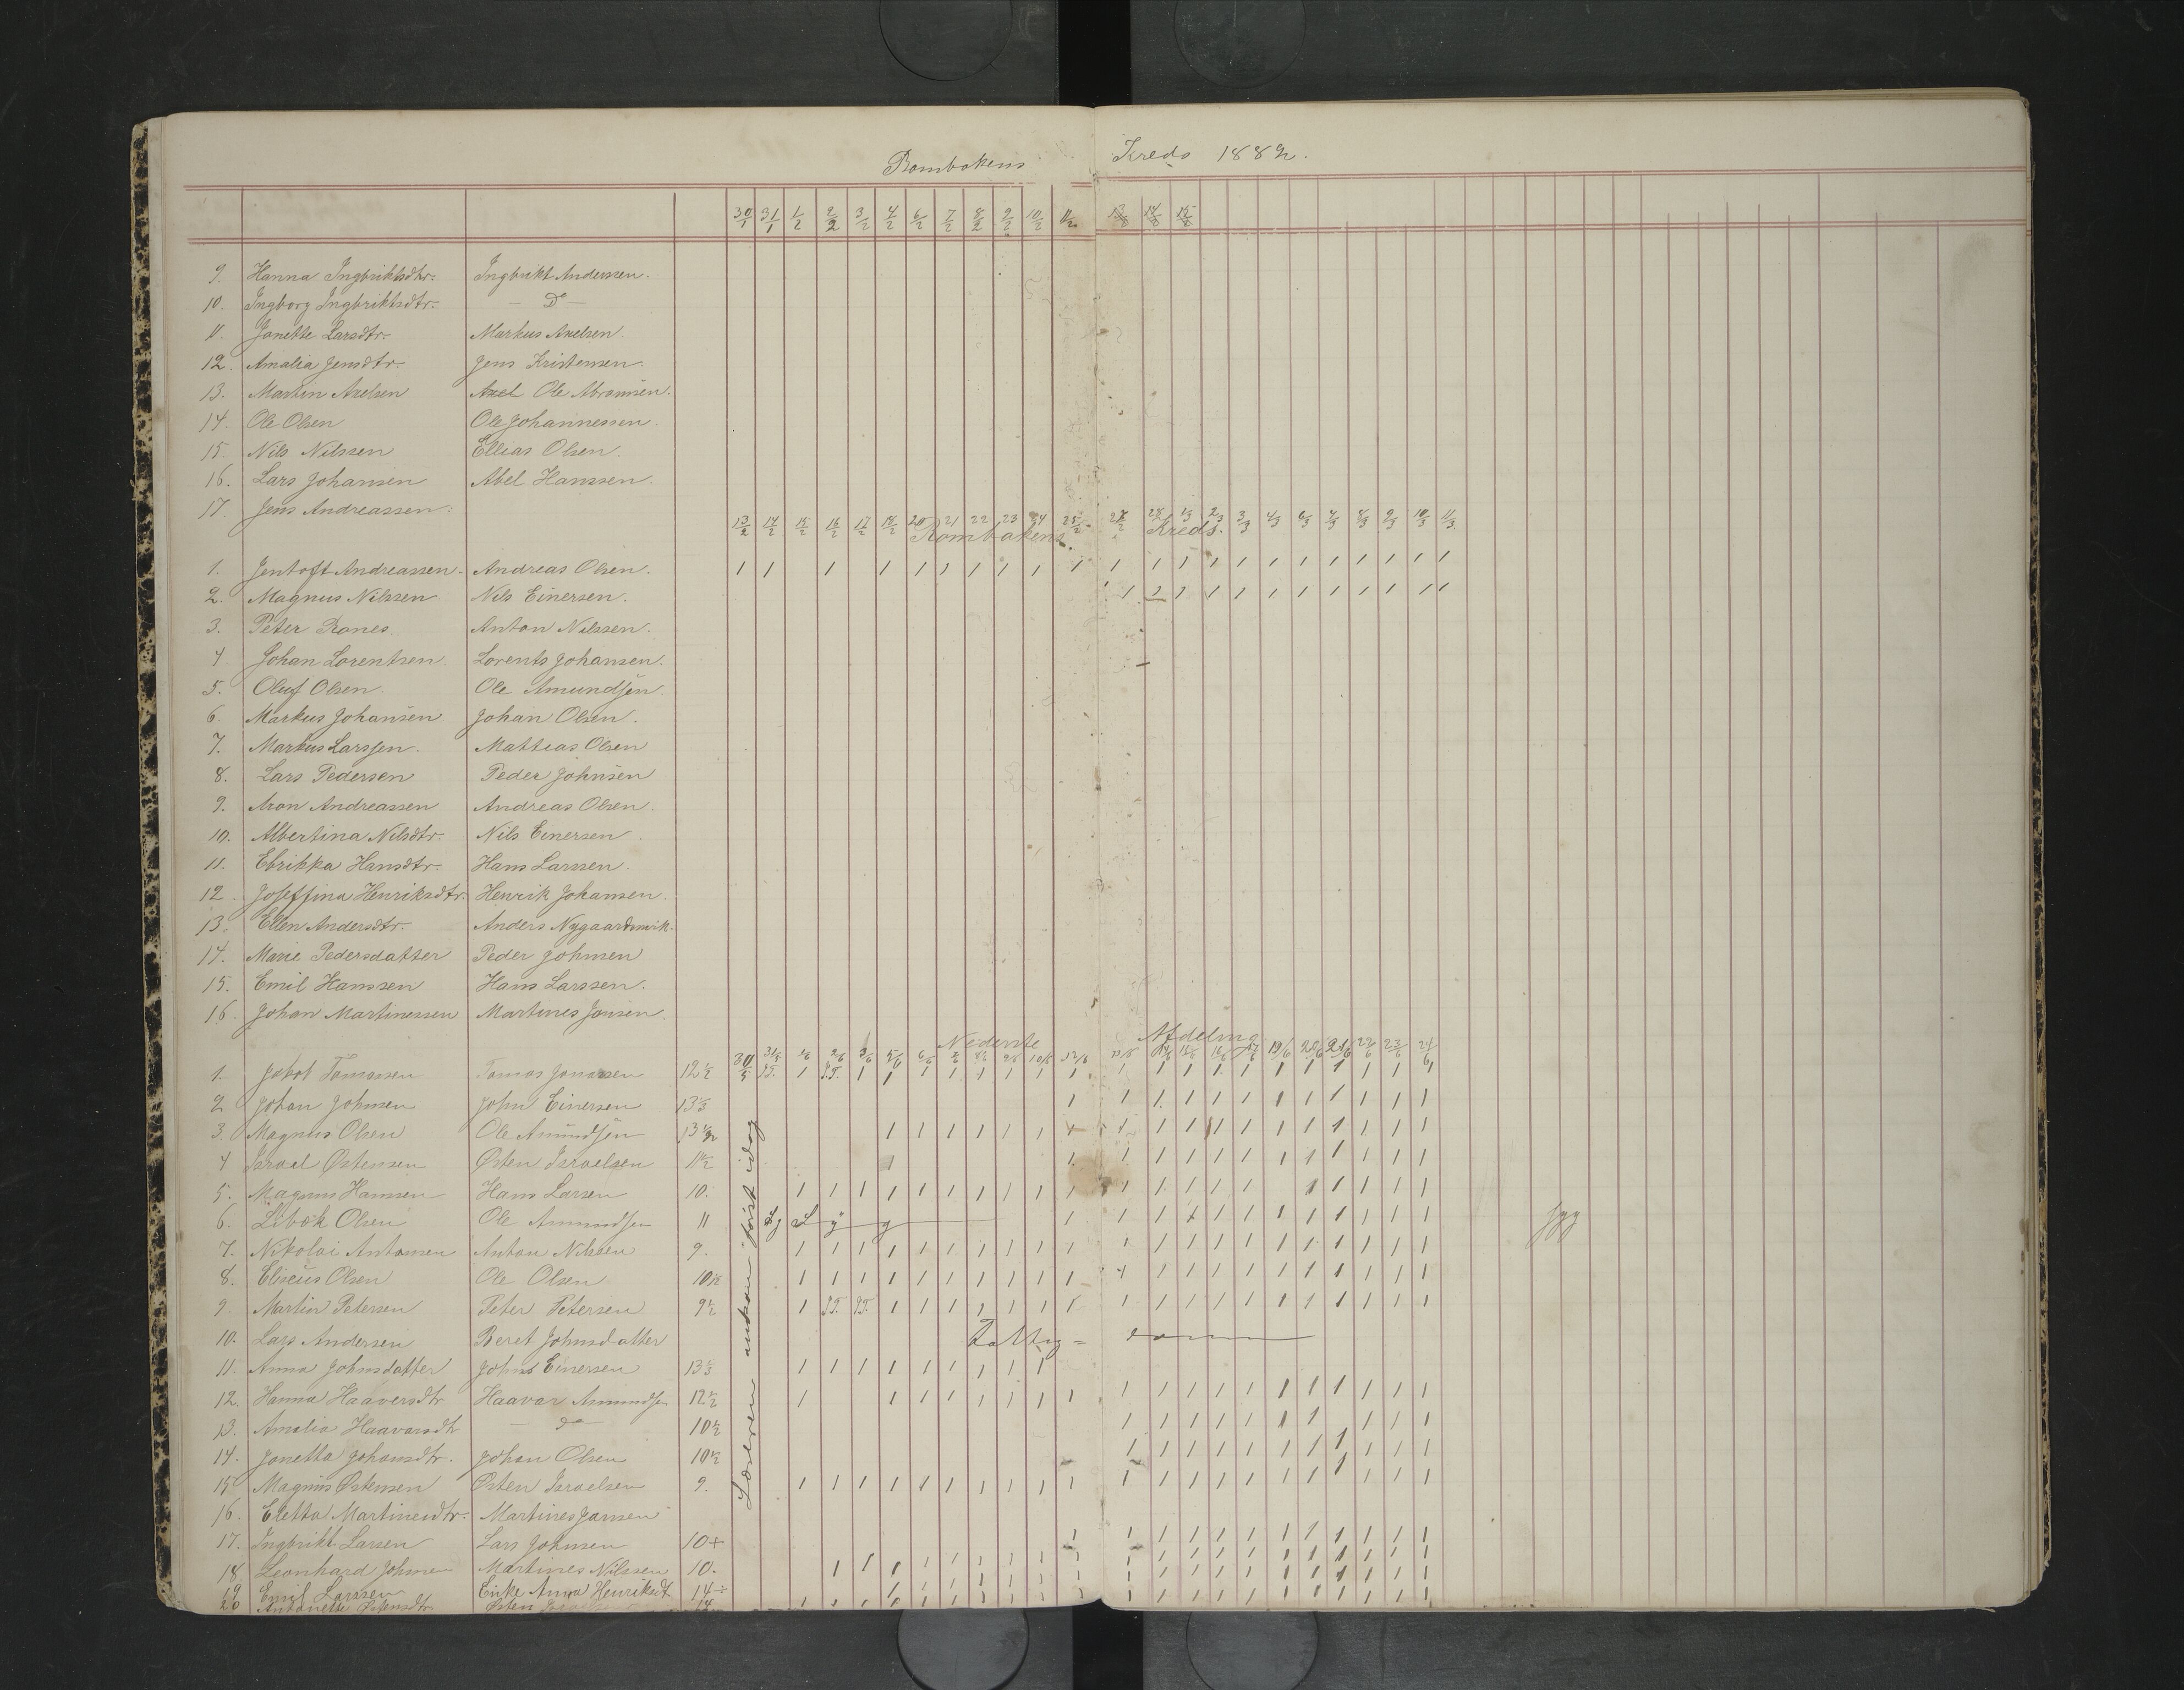 Rombakens Kreds 1882.
30/1 31/1 1/2 2/2 3/2 4/2 6/2 7/2 8/2 9/2 10/2 11/2 13/2 14/2 15/2
9. Hanna Ingbriktsdtr. Ingbrikt Anderssen.
10. Ingborg Ingbriktsdtr. — Do —
11. Janette Larsdtr. Markus Axelsen.
12. Amalia Jensdtr. Jens Kristensen.
13. Martin Axelsen Axel Ole Abramsen.
14. Ole Olsen Ole Johannessen.
15. Nils Nilssen Ellias Olsen.
16. Lars Johansen Abel Hanssen.
17. Jens Andreassen.
13/2 14/2 15/2 16/2 17/2 18/2 20 21 22 23 24 25/2 27/2 28/2 1/3 2/3 3/3 4/3 6/3 7/3 8/3 9/3 10/3 11/3
Rombakens Kreds.
1. Jentoft Andreassen. Andreas Olsen. 1 1 1 1 1 1 1 1 1 1 1 1 1 1 1 1 1 1 1 1 1 1
2. Magnus Nilssen Nils Einersen. 1 1 1 1 1 1 1 1 1 1 1 1
3. Peter Ranes. Anton Nilssen.
4. Johan Lorentsen. Lorents Johansen.
5. Oluf Olsen. Ole Amundsen.
6. Markus Johansen Johan Olsen.
7. Markus Larssen. Mattias Olsen
8. Lars Pedersen Peder Johnsen
9. Aron Andreassen Andreas Olsen.
10. Albertina Nilsdtr. Nils Einersen.
11. Ebrikka Hansdtr. Hans Larssen.
12. Joseffina Henriksdtr. Henrik Johansen.
13. Ellen Andersdtr. Anders Nygaardsvik.
14. Marie Pedersdatter Peder Johnsen
15. Emil Hanssen Hans Larssen.
16. Johan Martinessen Martines Jansen.
Nederste Afdeling
30/5 31/5 1/6 2/6 3/6 5/6 6/6 7/6 8/6 9/6 10/6 12/6 13/6 14/6 15/6 16/6 17/6 19/6 20/6 21/6 22/6 23/6 24/6
1. Jakob Tomassen Tomas Jonassen 12 1/2 1 1 1 1 1 1 1 1 1 1 1 1 1 1 1 1 1 1 1 1
2. Johan Johnsen John Einersen 13 1/3 1 1 1 1 1 1 1 1 1 1 1 1
3. Magnus Olsen Ole Amundsen 13 1/2 1 1 1 1 1 1 1 1 1 1 1 1 1 1 1 1 1 1
4. Israel Østensen Østen Israelsen 11 1/2 1 1 1 1 1 1 1 1 1 1 1 1 1
5. Magnus Hanssen Hans Larsen 10. 1 1 1 1 1 1 1 1 1 1 1 1 1 1 1 1 1 1 1 1
6. Libok Olsen Ole Amundsen 11 Syg 1 1 1 1 1 1 1 1 1 1 1 1
7. Nikolai Antonsen Anton Nilssen 9. 1 1 1 1 1 1 1 1 1 1 1 1 1 1 1 1 1 1 1 1 1
8. Eliseus Olsen Ole Olsen 10 1/2 1 1 1 1 1 1 1 1 1 1 1 1 1 1 1 1 1 1 1 1 1
9. Martin Petersen Peter Petersen 9 1/2 1 1 1 1 1 1 1 1 1 1 1 1 1 1 1 1 1 1 1
10. Lars Andersen Beret Johnsdatter Fattig= dom
11. Anna Johnsdatter John Einersen 13 1/3 1 1 1 1 1 1 1 1 1
12. Hanna Haaversdtr Haavar Amundsen 12 1/2 1 1 1 1 1 1 1 1 1 1 1 1 1 1 1 1 1 1 1
13. Amalia Haavarsdtr — do — 10 1/2 1 1 1 1 1 1 1 1 1 1
14. Janetta Johansdtr. Johan Olsen 10 1/2 1 1 1 1 1 1 1 1 1 1 1
15. Magnus Østensen Østen Israelsen 9. 1 1 1 1 1 1 1 1 1 1 1 1 1 1 1 1 1 1 1 1 1
16. Eletta Martinesdtr. Martines Jansen
17. Ingbrikt Larsen Lars Johnsen 10+ 1 1 1 1 1 1 1 1 1 1 1 1
18 Leonhard Johnsen Martines Nilssen 10.
19 Emil Larssen Enke Anna Henriksdt 14÷
20 Antonette Østensdtr. Østen
Læreren ankom først idag